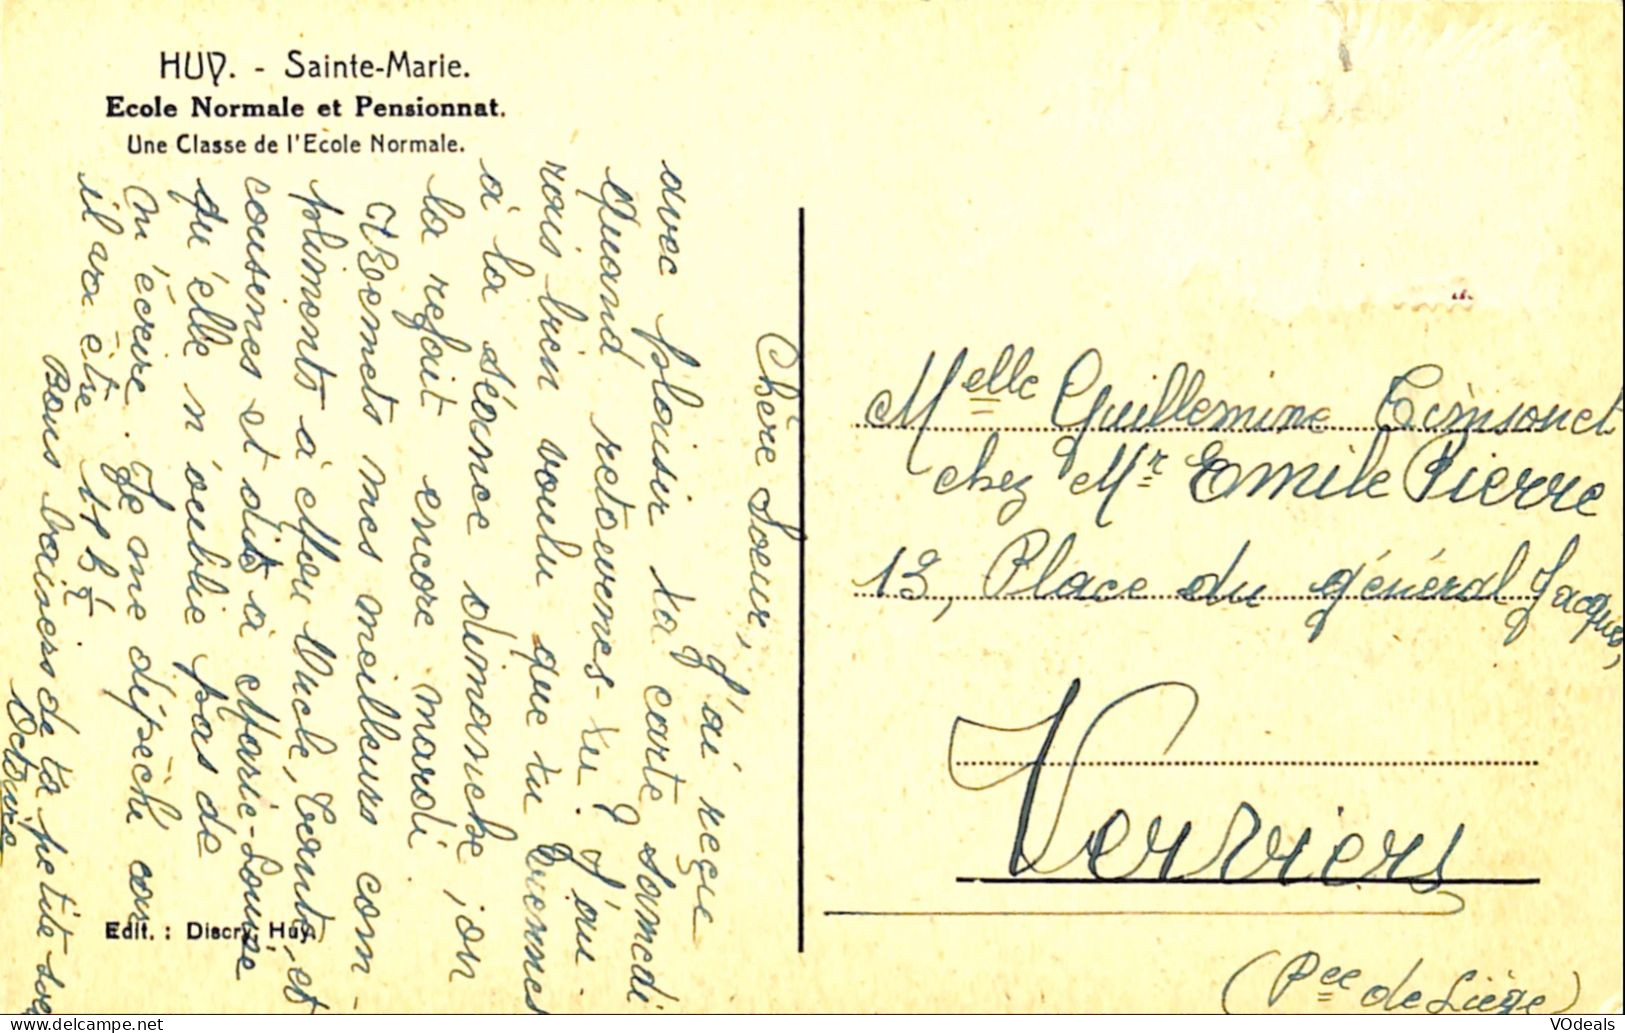 HUY. - Sainte-Marie.
Ecole Normale et Pensionnat.
Une Classe de l'Ecole Normale.
Chère Soeur,
J'ai reçue
avec plaisir ta carte samedi
Quand retournes-tu? J'au
rais bien voulu que tu viennes
à la séance dimanche; on
la refait encore mardi.
Remets mes meilleurs com-
pliments à Mon Oncle, Tante, et
cousines et dis à Marie-Louise
qu'elle n'oublie pas de
m'écrire. Je me dépêche car
il va être 11h ½
Bons baisers de ta petite soeur
Octavie
Melle Guillemine Timsonet
chez Mr Emile Pierre
13, Place du général Jacques,
Verviers
(Pce de Liège)
Edit. : Discry, Huy.
VOdeals